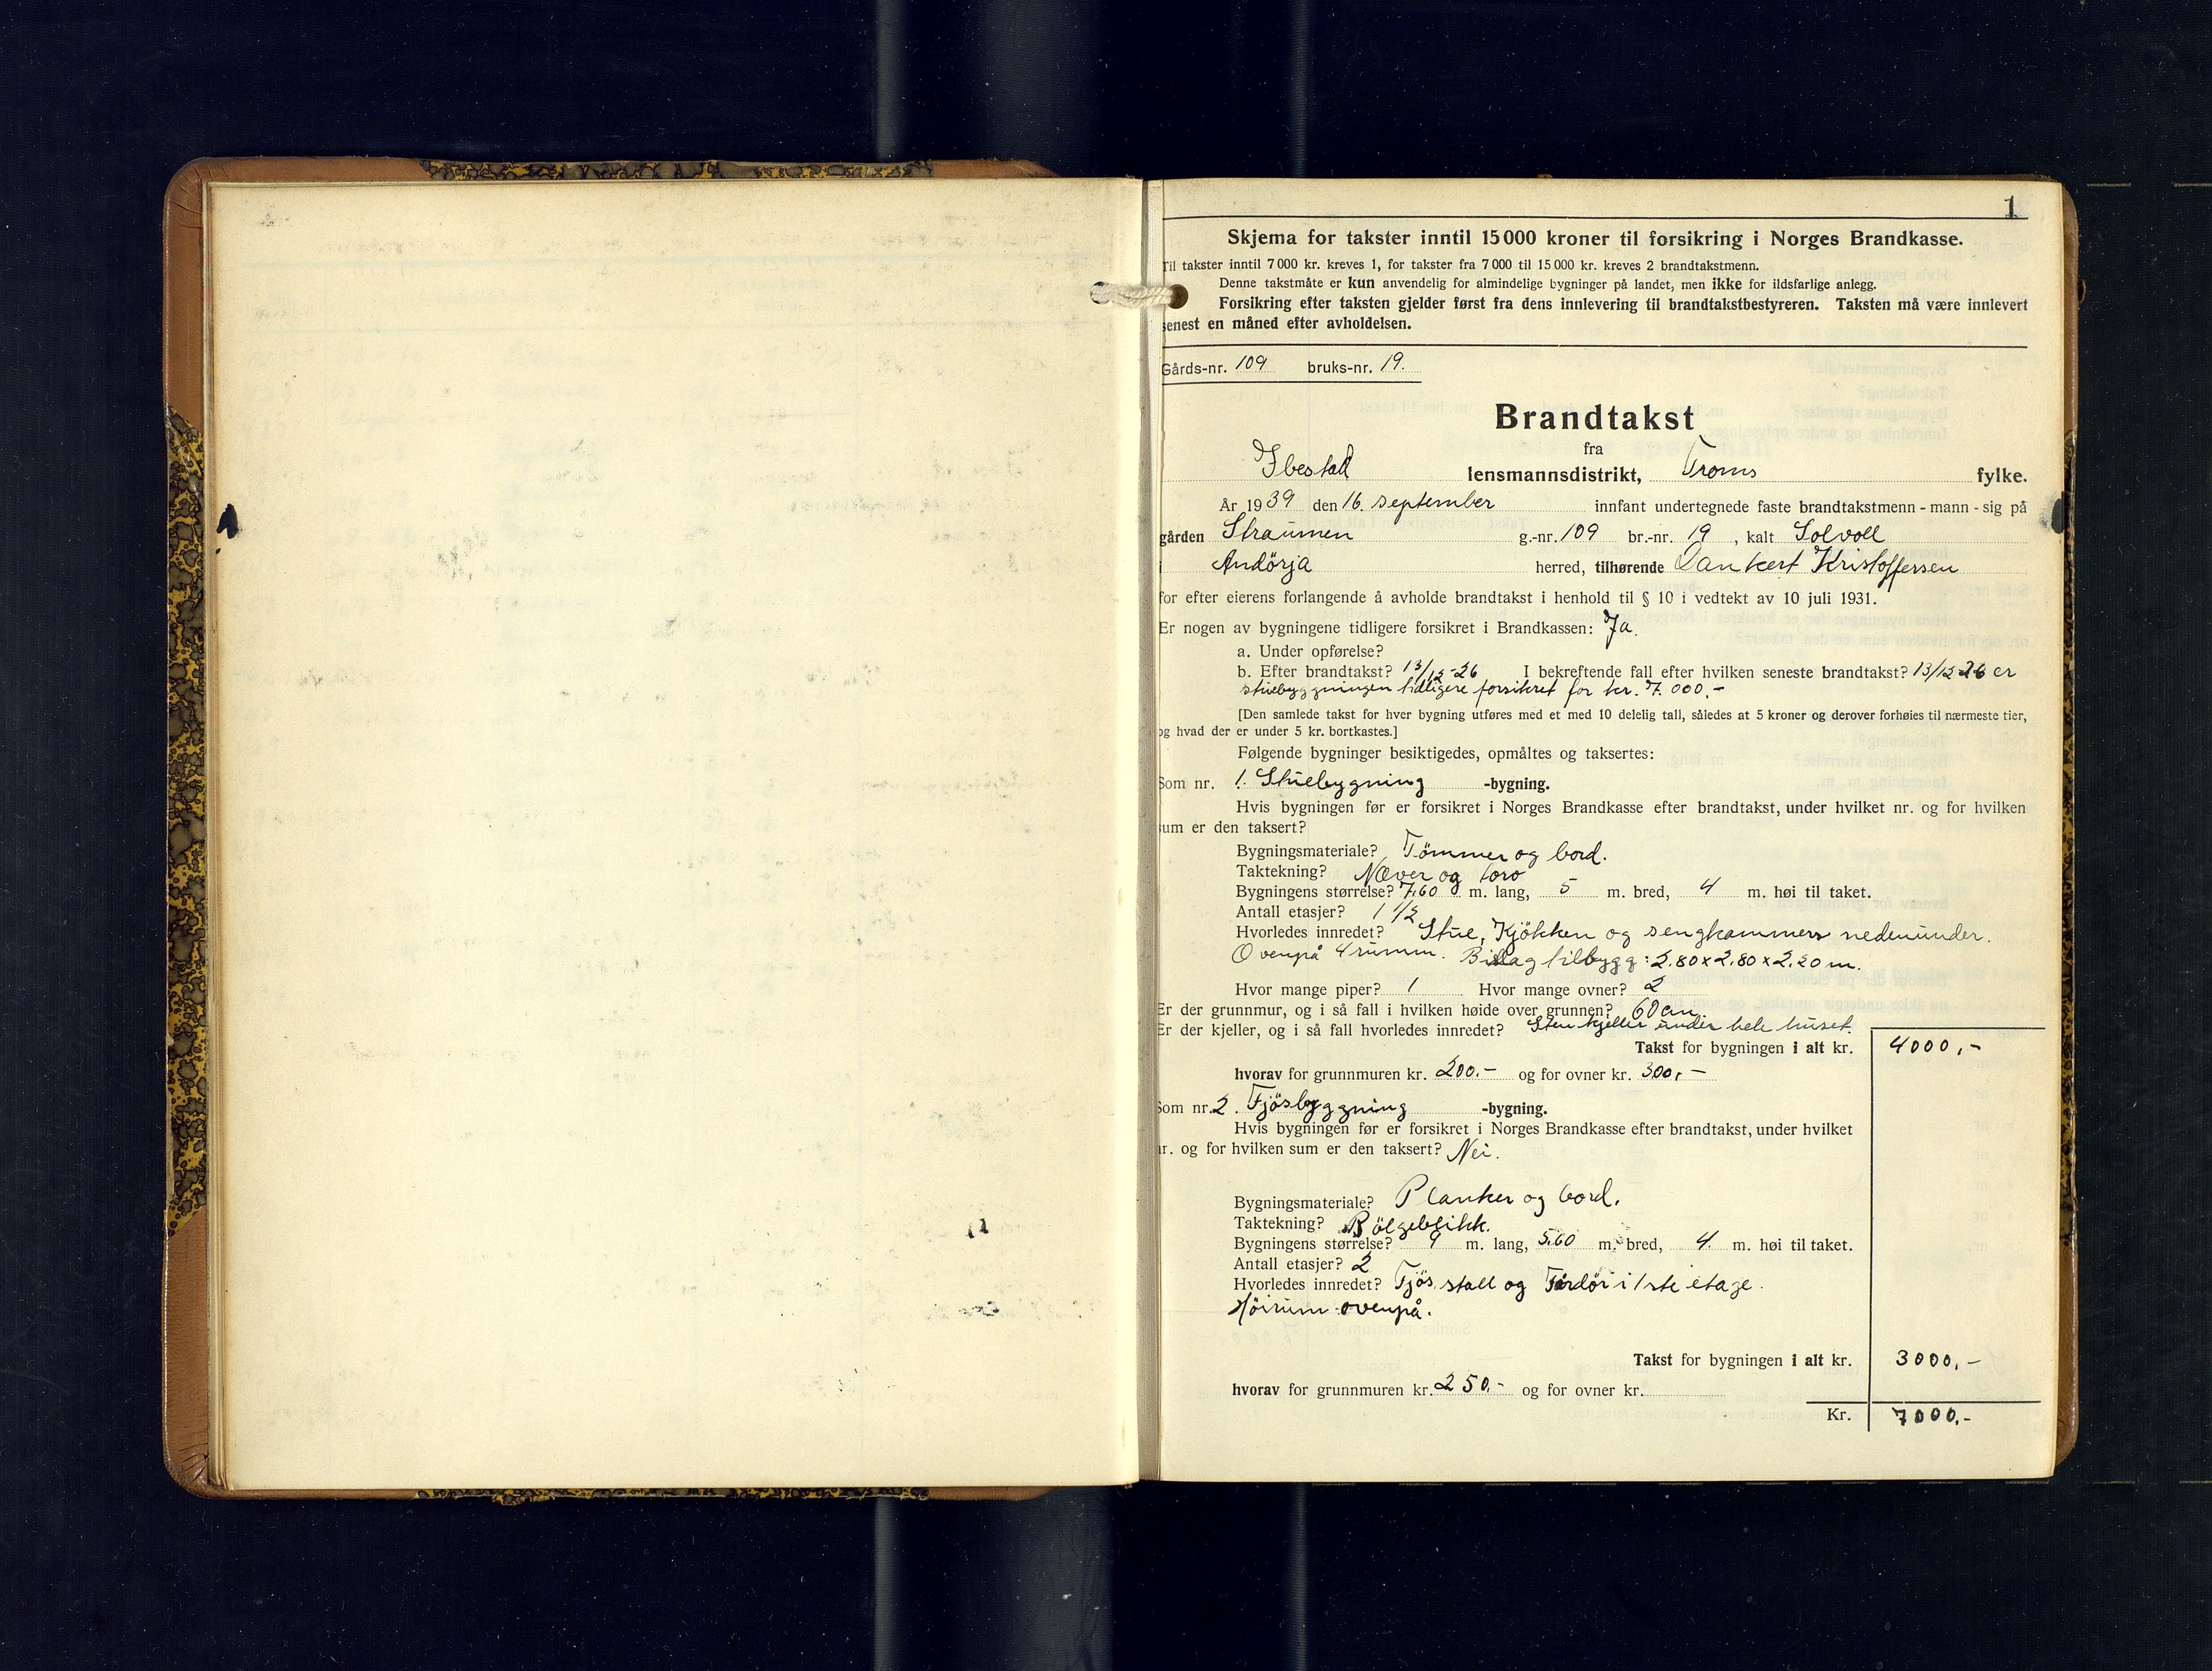 1
Skjema for takster inntil 15 000 kroner til forsikring i Norges Brandkasse.
Til takster inntil 7 000 kr. kreves 1, for takster fra 7 000 til 15 000 kr. kreves 2 brandtakstmenn.
Denne takstmåte er kun anvendelig for almindelige bygninger på landet, men ikke for ildsfarlige anlegg.
Forsikring efter taksten gjelder først fra dens innlevering til brandtakstbestyreren. Taksten må være innlevert
senest en måned efter avholdelsen.
Gårds-nr. 109 bruks-nr. 19.
Brandtakst
fra
Ibestad lensmannsdistrikt, Troms fylke.
År 1939 den 16. september innfant undertegnede faste brandtakstmenn - mann - sig på
gården Straumen g.-nr. 109 br.-nr. 19, kalt Solvoll
i Andörja herred, tilhørende Dankert Kristoffersen
for efter eierens forlangende å avholde brandtakst i henhold til § 10 i vedtekt av 10 juli 1931.
Er nogen av bygningene tidligere forsikret i Brandkassen: Ja.
a. Under opførelse?
b. Efter brandtakst? 13/12-26 I bekreftende fall efter hvilken seneste brandtakst? 13/12-26 er
stuebyggningen tidligere forsikret for kr. 7.000,-
[Den samlede takst for hver bygning utføres med et med 10 delelig tall, således at 5 kroner og derover forhøies til nærmeste tier,
og hvad der er under 5 kr. bortkastes.]
Følgende bygninger besiktigedes, opmåltes og taksertes:
Som nr. 1. Stuebygning -bygning.
Hvis bygningen før er forsikret i Norges Brandkasse efter brandtakst, under hvilket nr. og for hvilken
sum er den taksert?
Bygningsmateriale? Tömmer og bord.
Taktekning? Næver og torv
Bygningens størrelse? 7,60 m. lang, 5 m. bred, 4 m. høi til taket.
Antall etasjer? 1 1/2
Hvorledes innredet? Stue, Kjökken og sengkammers nedenunder.
Ovenpå 4 rumm. Bislag tilbygg: 2.80 x 2.80 x 2.20 m.
Hvor mange piper? 1 Hvor mange ovner? 2
Er der grunnmur, og i så fall i hvilken høide over grunnen? 60 cm.
Er der kjeller, og i så fall hvorledes innredet? Sten kjeller under hele huset.
Takst for bygningen i alt kr. 4000,-
hvorav for grunnmuren kr. 200.- og for ovner kr. 300,-
Som nr. 2. Fjösbyggning -bygning.
Hvis bygningen før er forsikret i Norges Brandkasse efter brandtakst, under hvilket
nr. og for hvilken sum er den taksert? Nei.
Bygningsmateriale? Planker og bord.
Taktekning? Bölgeblikk.
Bygningens størrelse? 9 m. lang, 5.60 m. bred, 4. m. høi til taket.
Antall etasjer? 2
Hvorledes innredet? Fjös, stall og i 1ste etage.
Höirum ovenpå.
Takst for bygningen i alt kr. 3000,-
hvorav for grunnmuren kr. 250.- og for ovner kr.
Kr. 7000.-